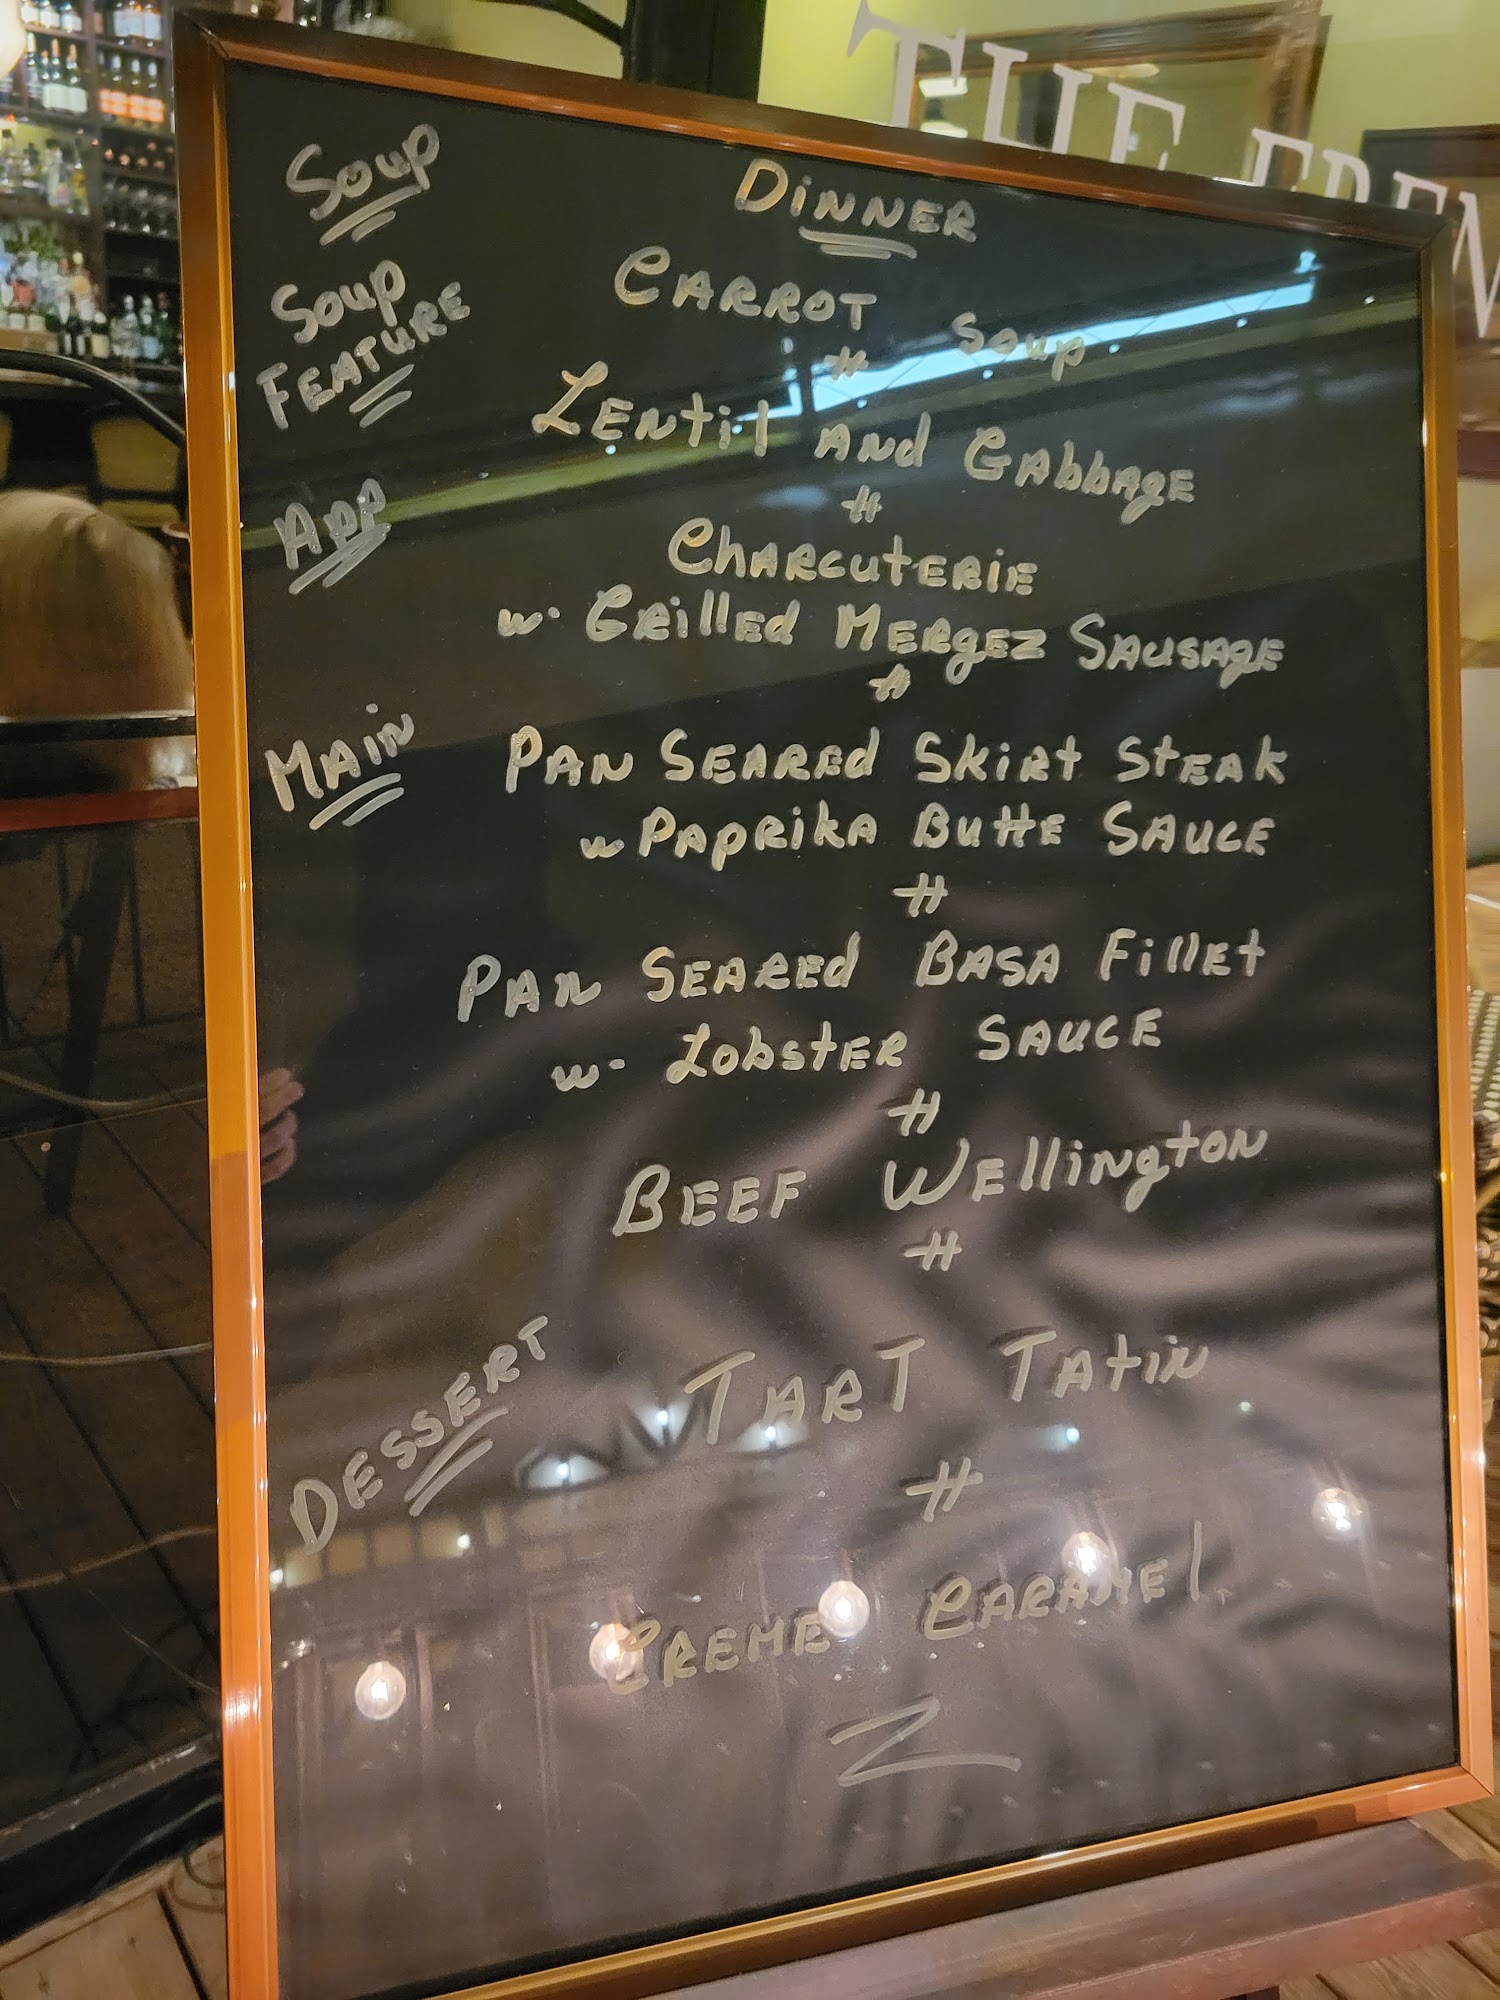 THE FREN
Soup
Dinner
Soup
Feature
Carrot Soup
#
Lentil and Cabbage
#
App
Charcuterie
w. Grilled Mergez Sausage
#
Main
Pan Seared Skirt Steak
w Paprika Butte Sauce
#
Pan Seared Basa Fillet
w. Lobster Sauce
#
Beef Wellington
#
Dessert
Tart Tatin
#
Creme Caramel